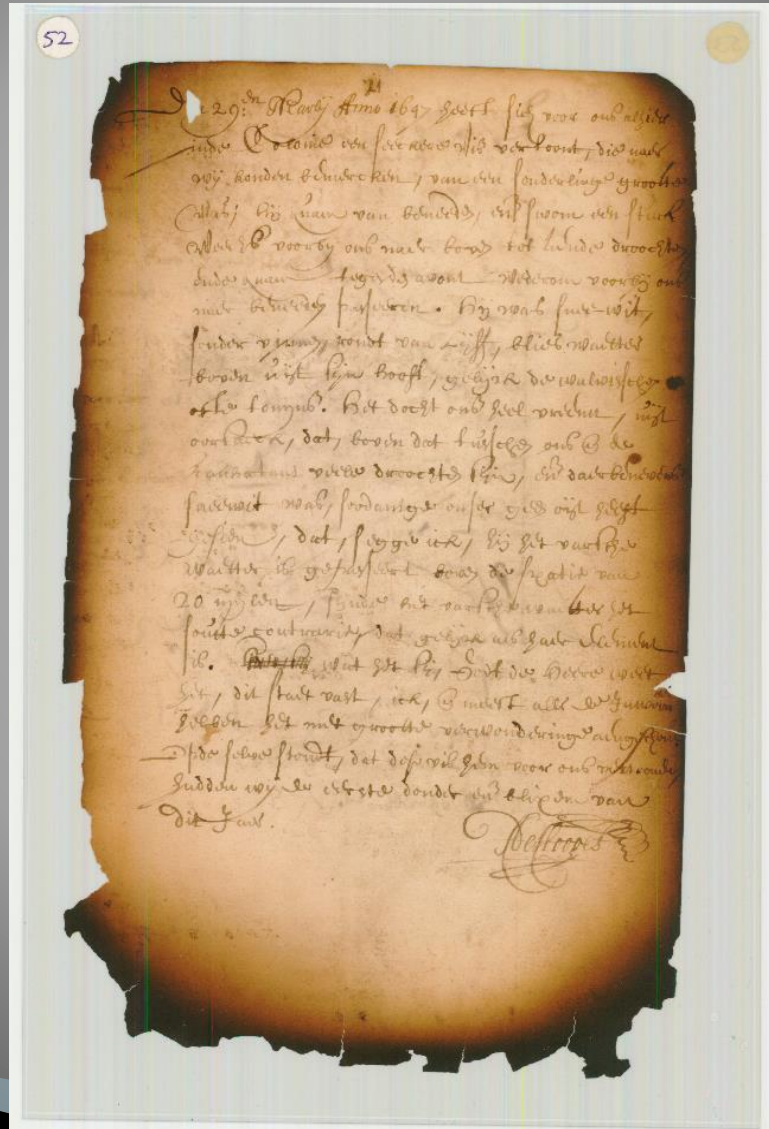 52
De 29:en Martij Anno 1647 heeft sich voor ons alhier
inde Colonie een seeckere vis vertoont, die naer
wij konden bemercken, van een sonderlinge grootte
was, hij quam van beneeden, ende swom een stuck
weechs voorbij ons naer boven tot aende droochten
ende quam tegen den avont wederom voorbij ons
naer beneeden passeeren. Hij was snee wit,
sonder vinnen, rondt van lijff, blies waetter
boven uijt sijn hooft, gelijck de walvisschen
ofte tonijns. Het docht ons heel vreemt, uijt
oorsaeck, dat, boven dat tusschen ons en de
veele droochten sijn, ende daer beneevens
sneewit was, soodanige onser geen oijt heeft
gesien, dat, segge ick, hij het varsche
waetter is gepasseert boven de spatie van
20 mijlen, sijnde het varsche waetter het
soutte contrarie, dat gelijck als haer element
is. wat het sij, Godt de Heere weet
het, dit staet vast, ick, en meest alle de Inwoon
hebben het met grootte verwonderinge aengesien.
Opde selve stondt, dat dese vis hem voor ons
hadden wij de eerste donder ende blixem van
dit Jaer.
ADeHooges